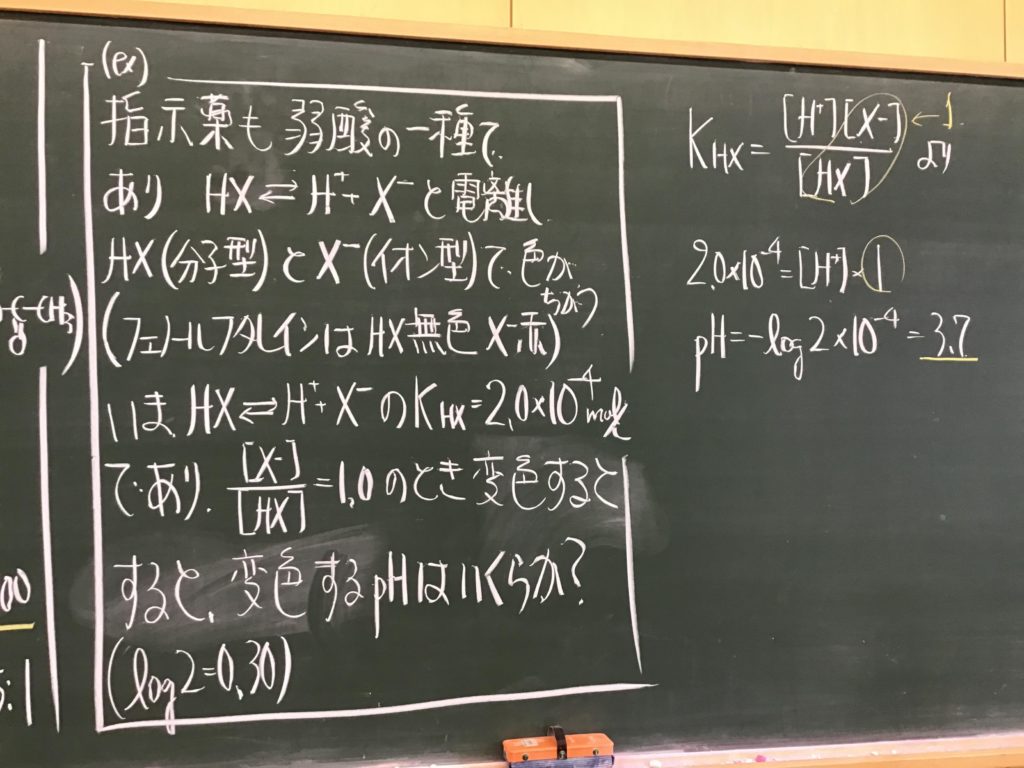 (ex)
指示薬も弱酸の一種で
あり HX⇄H⁺+X⁻と電離し
HX(分子型)とX⁻(イオン型)で色が
ちがう
(フェノールフタレインはHX無色 X⁻赤)
いま HX⇄H⁺+X⁻のK_HX=2.0×10⁻⁴mol/ℓ
であり. [X⁻]/[HX]=1.0のとき変色すると
すると、変色するpHはいくらか?
(log2=0.30)
K_HX=[H⁺][X⁻]/[HX] ←1
より
2.0×10⁻⁴=[H⁺]×1
pH=-log2×10⁻⁴=3.7
00
:1